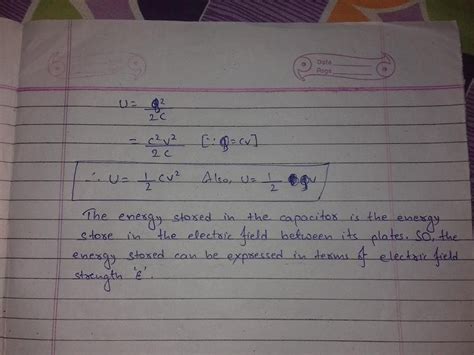 Date
Page
U = Q²/2C
= C²V²/2C [∵ Q = CV]
∴ U = 1/2 CV² Also, U = 1/2 QV
The energy stored in the capacitor is the energy
store in the electric field between its plates. SO, the
energy stored can be expressed in terms of electric field
strength 'E'.